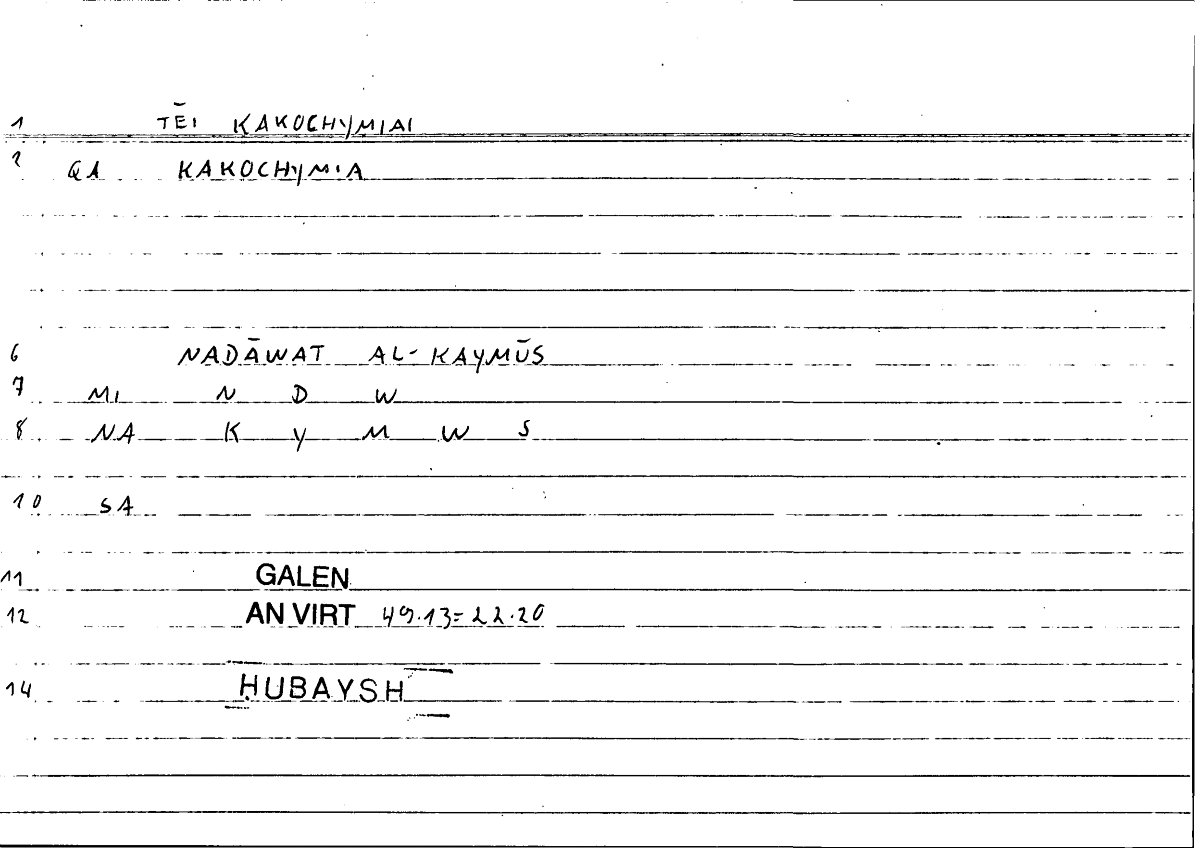 1 TĒI KAKOCHYMIAI
2 QA KAKOCHYMIA
6 NADĀWAT AL-KAYMŪS
7 MI N D W
8 NA K Y M W S
10 SA
11 GALEN
12 AN VIRT 49.13=22.20
14 ḤUBAYSH